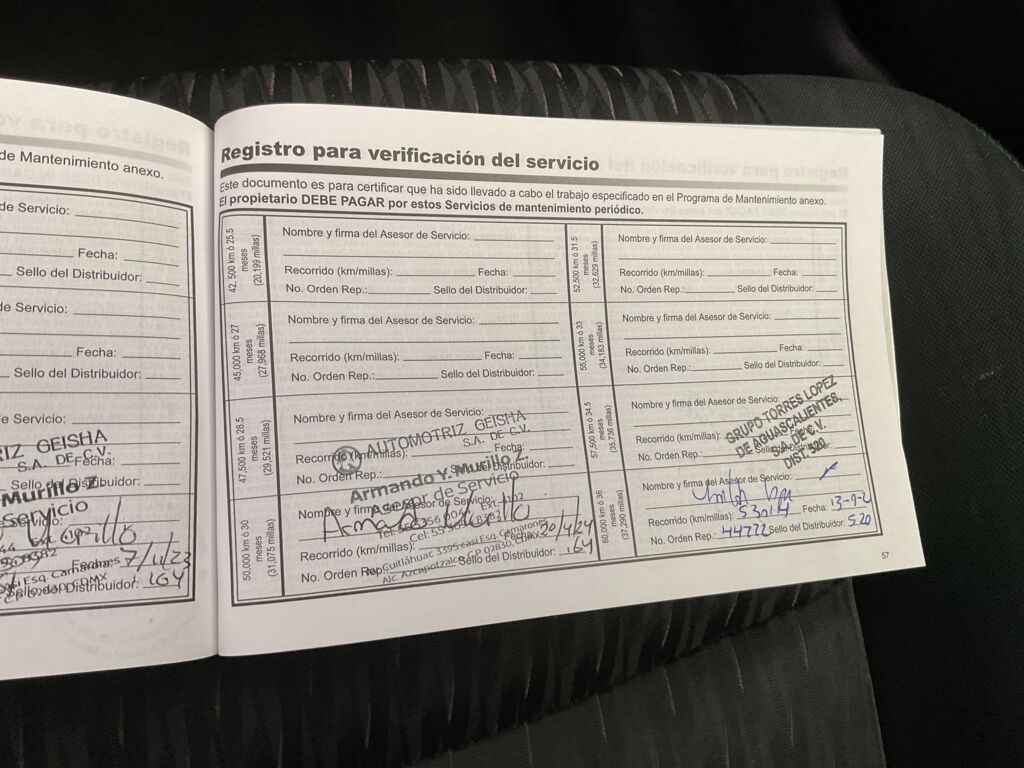 de Mantenimiento anexo.
de Servicio:
Fecha:
Sello del Distribuidor:
de Servicio:
Fecha:
Sello del Distribuidor:
de Servicio:
RIZ GEISHA
S.A. DE C.V.
Fecha:
Sello del Distribuidor:
Murillo Z
Servicio
Servicio:
Fecha: 7/11/23
Sello del Distribuidor: 164
Registro para verificación del servicio
Este documento es para certificar que ha sido llevado a cabo el trabajo especificado en el Programa de Mantenimiento anexo.
El propietario DEBE PAGAR por estos Servicios de mantenimiento periódico.
42, 500 km ó 25.5
meses
(20,199 millas)
Nombre y firma del Asesor de Servicio:
Recorrido (km/millas): Fecha:
No. Orden Rep.: Sello del Distribuidor:
45,000 km ó 27
meses
(27,968 millas)
Nombre y firma del Asesor de Servicio:
Recorrido (km/millas): Fecha:
No. Orden Rep.: Sello del Distribuidor:
47,500 km ó 28.5
meses
(29,521 millas)
Nombre y firma del Asesor de Servicio:
AUTOMOTRIZ GEISHA
S.A. DE C.V.
Recorrido (km/millas): Fecha:
No. Orden Rep.: Sello del Distribuidor:
Armando Y. Murillo Z.
Asesor de Servicio
50,000 km ó 30
meses
(31,075 millas)
Nombre y firma del Asesor de Servicio:
Recorrido (km/millas): Fecha: 20/4/24
Cuitláhuac 3395 casi Esq. Camarones
No. Orden Rep.: Sello del Distribuidor: 164
Alc. Azcapotzalco CP 02830
52,500 km ó 31.5
meses
(32,629 millas)
Nombre y firma del Asesor de Servicio:
Recorrido (km/millas): Fecha:
No. Orden Rep.: Sello del Distribuidor:
55,000 km ó 33
meses
(34,183 millas)
Nombre y firma del Asesor de Servicio:
Recorrido (km/millas): Fecha:
No. Orden Rep.: Sello del Distribuidor:
57,500 km ó 34.5
meses
(35,736 millas)
Nombre y firma del Asesor de Servicio:
Recorrido (km/millas): Fecha:
No. Orden Rep.: Sello del Distribuidor:
GRUPO TORRES LOPEZ
DE AGUASCALIENTES,
S.A. DE C.V.
DIST. 520
60,000 km ó 36
meses
(37,290 millas)
Nombre y firma del Asesor de Servicio:
Recorrido (km/millas): 53014 Fecha:
No. Orden Rep.: 44722 Sello del Distribuidor: 520
57